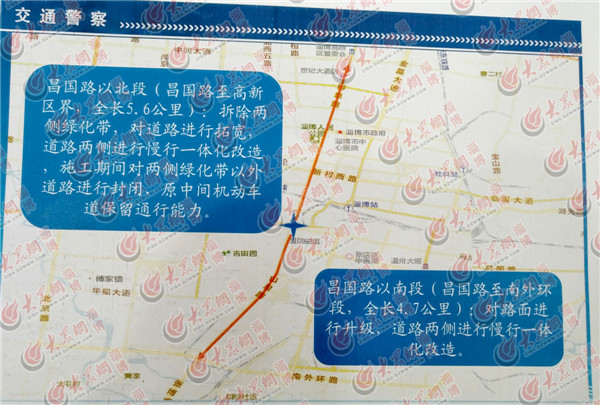 交通警察
昌国路以北段（昌国路至高新
区界，全长5.6公里）：拆除两
侧绿化带，对道路进行拓宽，
道路两侧进行慢行一体化改造
，施工期间对两侧绿化带以外
道路进行封闭，原中间机动车
道保留通行能力。
世纪大道
金晶大道
曹二村
淄博人民
公园
淄博市政府
淄博市中
心医院
新村西路
社科站
宝山路
淄博站
吉田园
傅家镇
华福大道
北京路
温州大厦
昌国路以南段（昌国路至南外环
段，全长4.7公里）：对路面进
行升级，道路两侧进行慢行一体
化改造。
南外环路
黄家
大众网
淄博